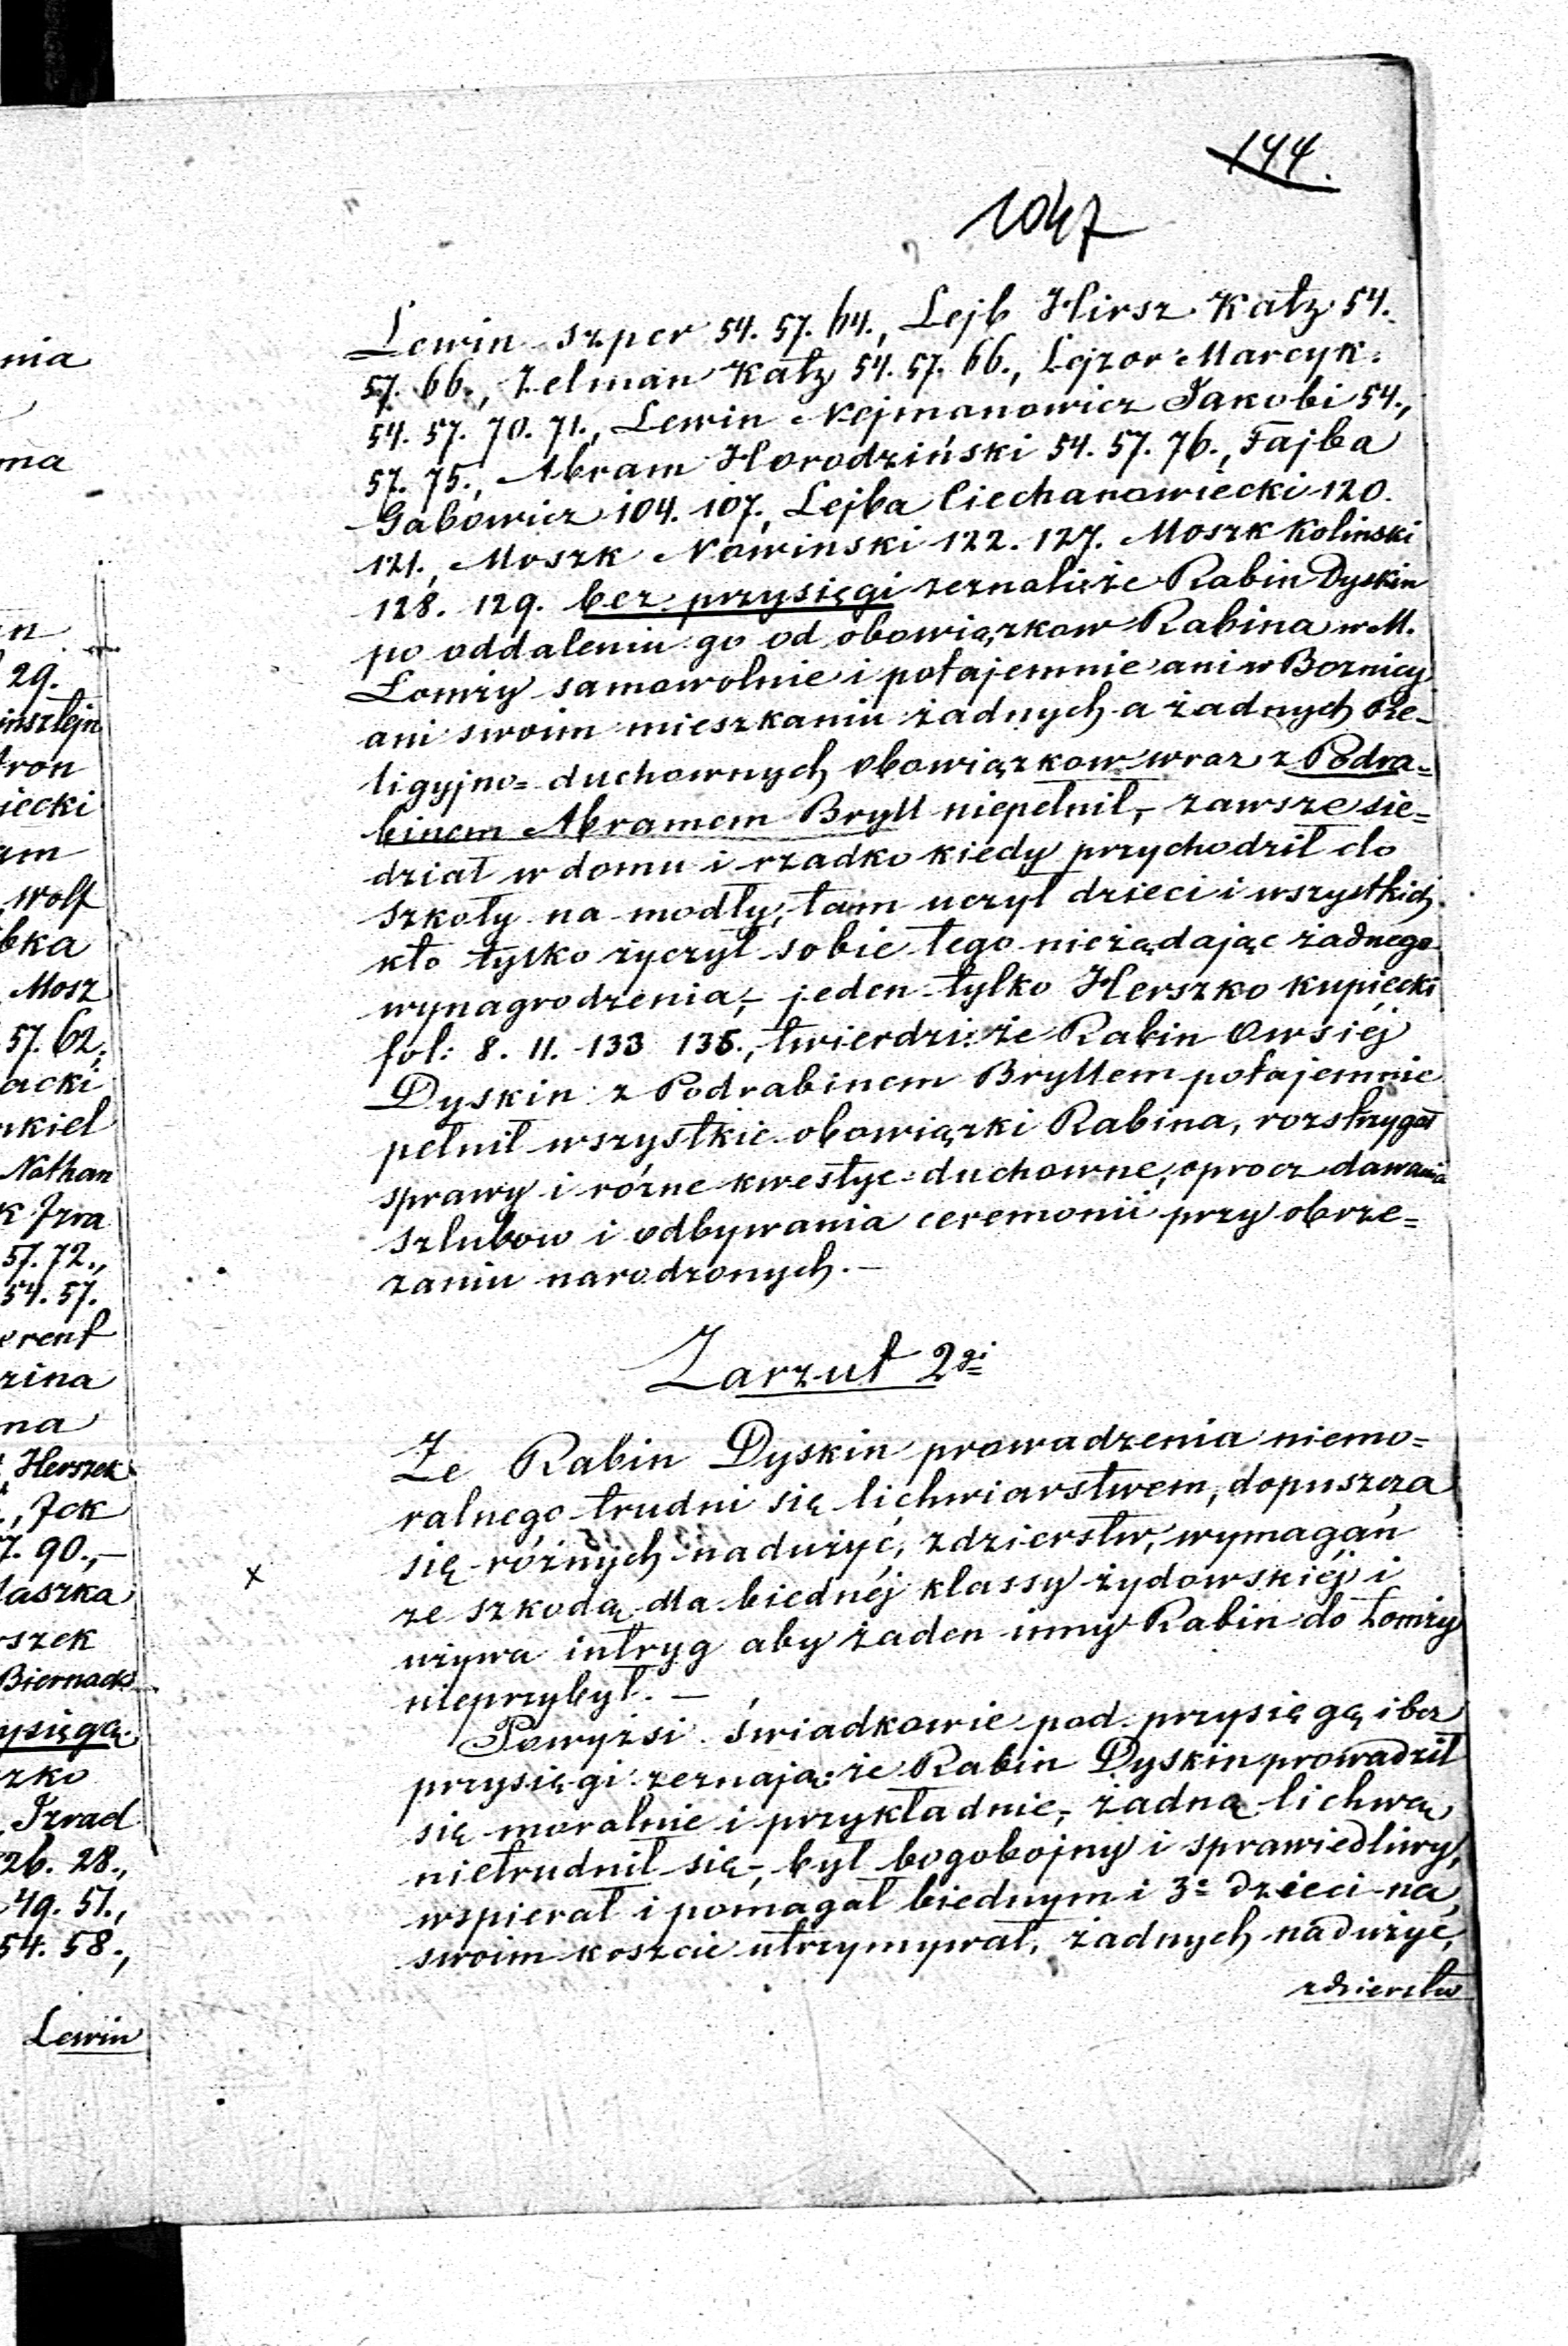 144.
1047
Lewin Szper 54. 57. 64., Lejb Hirsz Katz 54.
57. 66., Zelman Katz 54. 57. 66., Lejzor Marcyk.
54. 57. 70. 71., Lewin Nejmanowicz Jakobi 54.,
57. 75., Abram Horodziński 54. 57. 76., Fajba
Gabowicz 104. 107., Lejba Ciechanowiecki 120.
121., Moszk Nowinski 122. 127. Moszk Kolinski
128. 129. bez przysięgi zeznali: że Rabin Dyskin
po oddaleniu go od obowiązkow Rabina w M.
Łomży samowolnie i potajemnie ani w Boznicy
ani swoim mieszkaniu żadnych a żadnych Re-
ligyjno= duchownych obowiązkow wraz z Podra=
binem Abramem Bryll niepełnił, zawsze sie=
dział w domu i rzadko kiedy przychodził do
szkoły na modły, tam uczył dzieci i wszystkich
kto tylko życzył sobie tego nieżądając żadnego
wynagrodzenia, jeden tylko Herszko Kupiecki
fol: 8. 11. 133 135., twierdzi: że Rabin Owsiéj
Dyskin z Podrabinem Bryllem potajemnie
pełnił wszystkie obowiązki Rabina, rozstrzygał
sprawy i rózne kwestye duchowne, oprocz dawania
szlubow i odbywania ceremonii przy obrze=
zaniu narodzonych. —
Zarzut 2gi
Że Rabin Dyskin prowadzenia niemo=
ralnego trudni się lichwiarstwem, dopuszcza
się różnych nadużyć, zdzierstw, wymagań
x
ze szkodą dla biednéj klassy żydowskiéj i
używa intryg aby żaden inny Rabin do Łomży
nieprzybył. —
Powyżsi świadkowie pod przysięgą i bez
przysięgi zeznają: że Rabin Dyskin prowadził
się moralnie i przykładnie, żadną lichwą
nietrudnił się, był bogobojny i sprawiedliwy,
wspierał i pomagał biednym i 3e dzieci na
swoim koszcie utrzymywał, żadnych nadużyć,
zdzierstw
nia
ma
29.
Wolf
Mosz
57. 62.
Nathan
57. 72.,
54. 57.
Herszek
, Jck
90., —
26. 28.,
49. 51.,
54. 58.,
Lewin